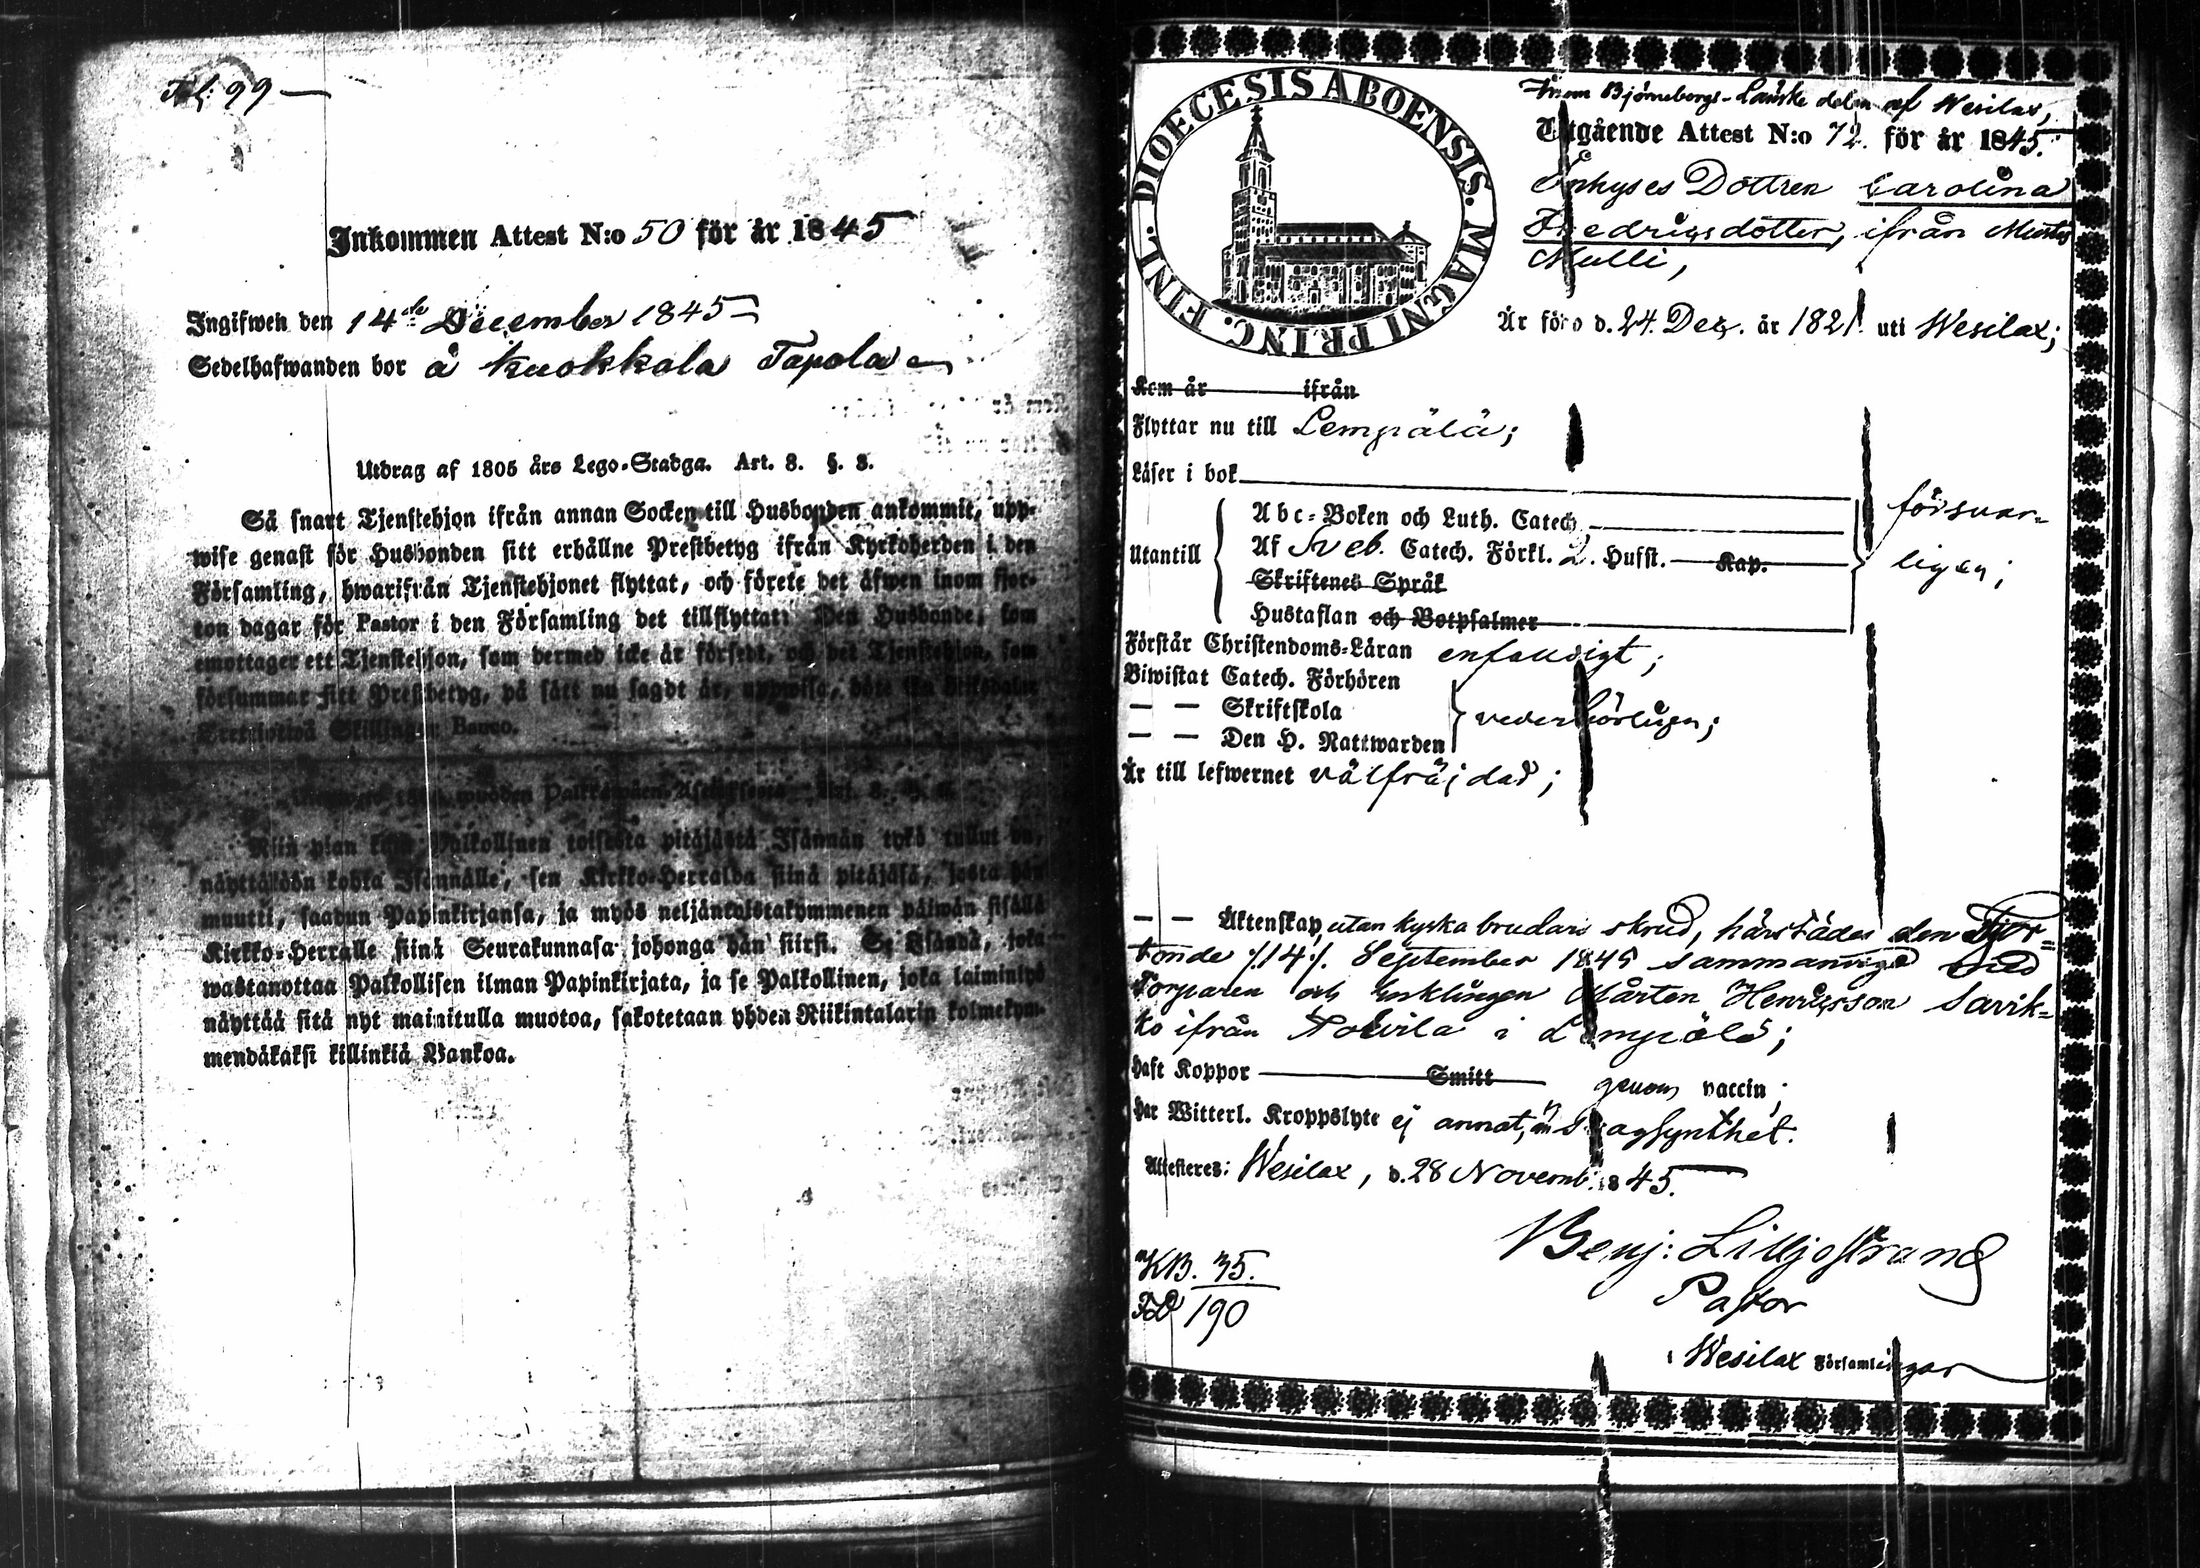 99
Inkommen Attest N:o 50 för år 1845
Ingifwen den 14de December 1845
Sedelhafwanden bor å Kuokkala Tapola
Utdrag af 1805 års Lego-Stadga. Art. 8. §. 8.
Så snart Tjenstehjon ifrån annan Socken till Husbonden ankommit, upp-
wise genast för Husbonden sitt erhållne Prestbetyg ifrån Kyrkoherden i den
Församling, hwarifrån Tjenstehjonet flyttat, och förete det äfwen inom fjor-
ton dagar för Pastor i den Församling det tillflyttat. Den Husbonde, som
emottager ett Tjenstehjon, som dermed icke är försedt, och det Tjenstehjon, som
försummar sitt Prestbetyg, på sätt nu sagdt är, uppwisa, böte En Riksdaler
Trettiotwå Skillingar Banco.
Palkkawäen Art. 8.
Niin pian kuin Palkollinen toisesta pitäjästä Isännän tykö tullut on,
näyttäköön kohta Isännälle, sen Kirkko-Herralda siinä pitäjäsä, josta hän
muutti, saadun Papinkirjansa, ja myös neljäntoistakymmenen päiwän sisällä
Kirkko-Herralle siinä Seurakunnasa johonga hän siirsi. Se Isändä, joka
wastanottaa Palkollisen ilman Papinkirjata, ja se Palkollinen, joka laiminlyö
näyttää sitä nyt mainitulla muotoa, sakotetaan yhden Riikintalarin kolmekym-
mendäkaksi killinkiä Bankoa.
DIOECESIS ABOENSIS. MAGNI PRINC. FINL.
Inom Björneborgs-Länske delen af Wesilax,
Utgående Attest N:o 72. för år 1845.
Inhyses Dottren Carolina
Fredricsdotter, ifrån Mustas
Mulli,
Är född d. 24. Dez. år 1821 uti Wesilax;
Kom år ifrån
Flyttar nu till Lempälä;
Läser i bok
Utantill
Abc-Boken och Luth. Catech.
Af Sveb. Catech. Förkl. 2. Hufst. Kap.
Skriftenes Språk
Hustaflan och Botpsalmer
försvar-
ligen;
Förstår Christendoms-Läran enfaldigt;
Biwistat Catech. Förhören
— — Skriftskola
— — Den H. Nattwarden
vederbörligen;
Är till lefwernet välfräjdad;
— — Äktenskap, utan kyska brudars skrud, härstädes den Fjor-
tonde /.14/. September 1845 sammanvigd med
Torparen och Enklingen Mårten Henricsson Savik-
ko ifrån i Lempälä;
Haft Koppor Smitt genom vaccin;
Har Witterl. Kroppslyte ej annat, än svagsynthet.
Attesteres: Wesilax, d. 28 Novemb. 1845.
Benj: Liljestrand
Pastor
i Wesilax Församlingar
KB. 35.
190